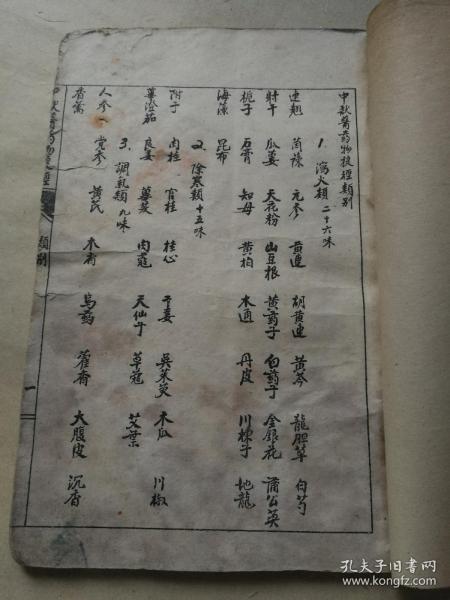 中獣醫药物按經類別
1. 瀉火類 二十六味
連翹 蔺藤 元参 黄連 胡黄連 黄芩 龍胆草 白芍
射干 瓜蔞 天花粉 山豆根 黄药子 白药子 金銀花 蒲公英
梔子 石膏 知母 黄柏 木通 丹皮 川楝子 地龍
海藻 昆布
2. 除寒類 十五味
附子 肉桂 官桂 桂心 干姜 吳茱萸 木瓜 川椒
蓽澄茄 良姜 蓽茇 肉蔻 天仙子 草蔻 艾葉
3. 調氣類 九味
人参 党参 黄芪 木香 烏药 藿香 大腹皮 沉香
香薷
類別
一
孔夫子旧书网
www.kongfz.com